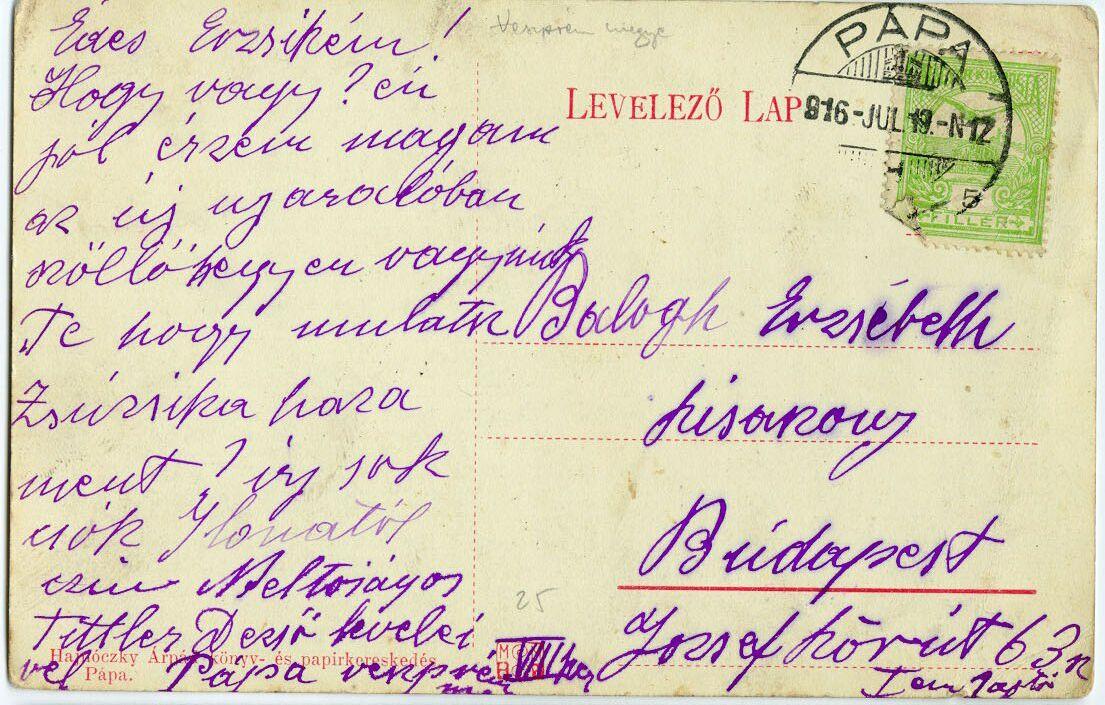 Édes Erzsikém!
Hogy vagy? én
jól érzem magam
az új nyaralóban
szöllőhegyen vagyunk
Te hogy mulatsz
Zsúzsika haza
ment? irj sok
csók Ilonától
czim Meltoságos
Tittler Dezső levelei
vel Pápa veszprém
megye
Veszprém megye
LEVELEZŐ LAP
PÁPA
916-JUL.19.-N12
5
FILLER
Balogh Erzsébeth
kisasszony
Búdapest
József körút 63 sz
I em
VIII ker
25
Hajnóczky Árpád könyv- és papirkereskedés
Pápa.